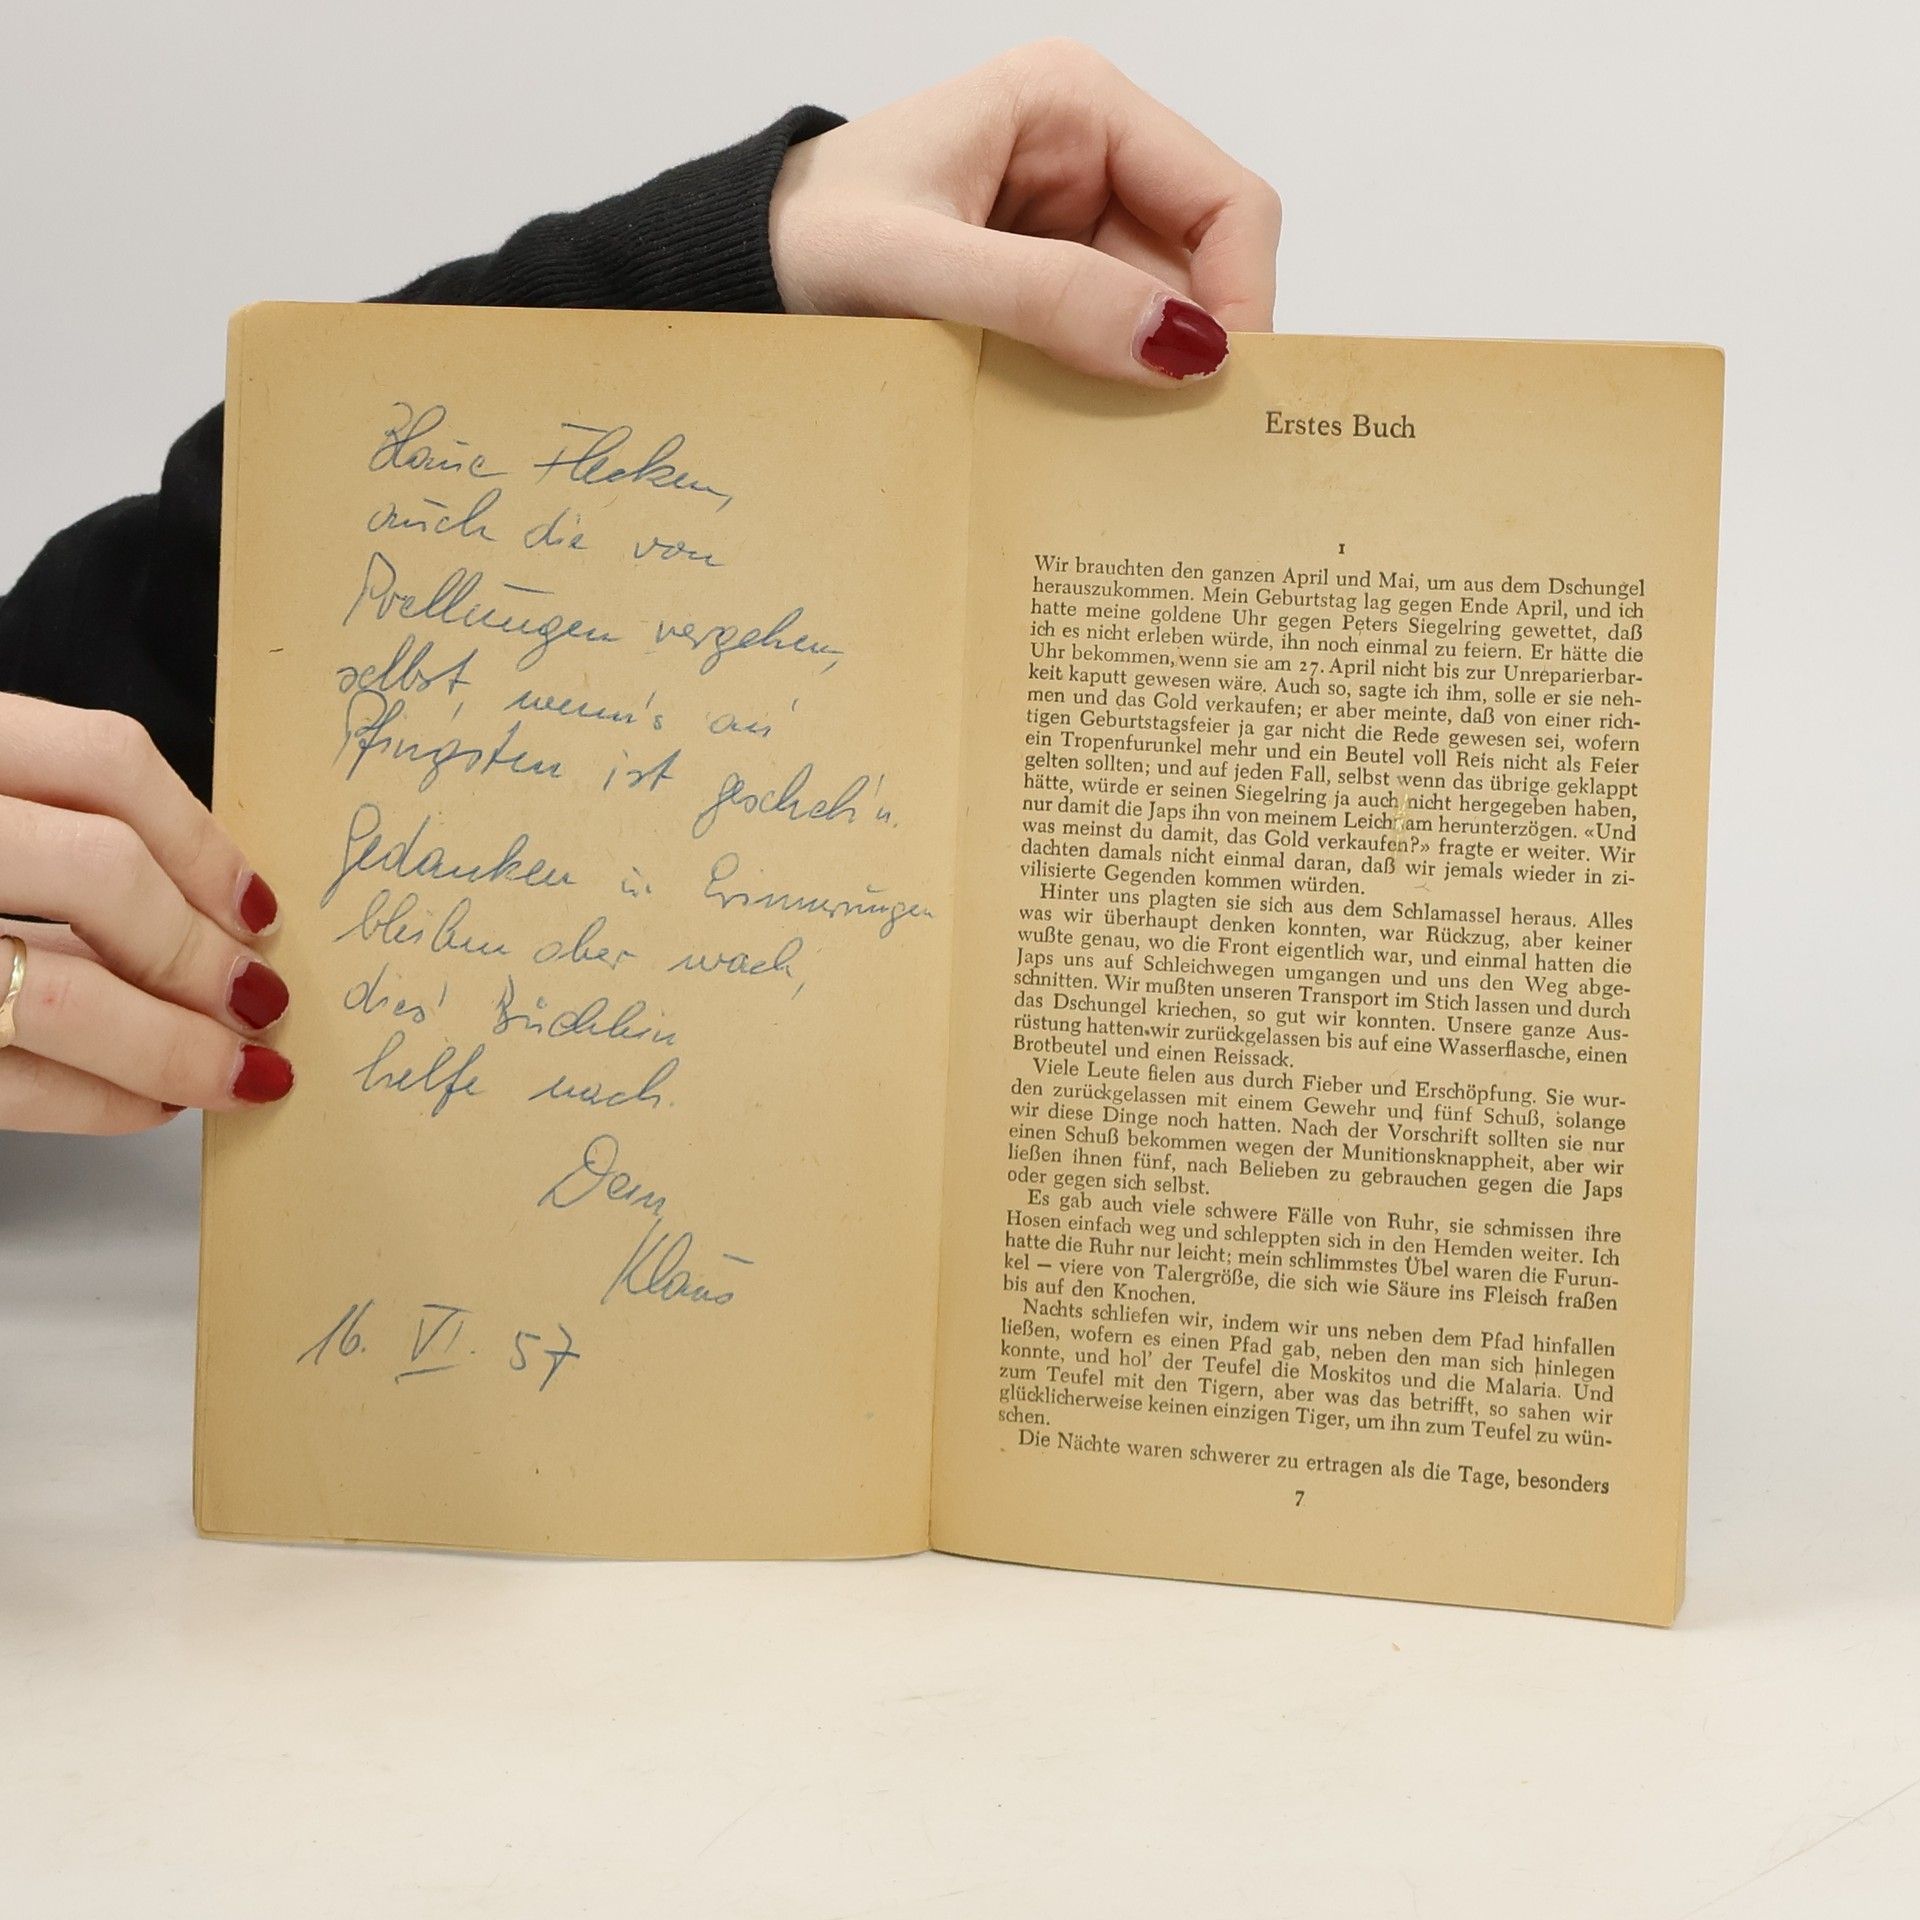 Blaue Flecken,
auch die von
Prellungen vergehen,
selbst, wenn's an
Pfingsten ist gescheh'n.
Gedanken u. Erinnerungen
bleiben aber wach,
dies' Büchlein
helfe nach.
Dein
Klaus
16. VI. 57
Erstes Buch
1
Wir brauchten den ganzen April und Mai, um aus dem Dschungel
herauszukommen. Mein Geburtstag lag gegen Ende April, und ich
hatte meine goldene Uhr gegen Peters Siegelring gewettet, daß
ich es nicht erleben würde, ihn noch einmal zu feiern. Er hätte die
Uhr bekommen, wenn sie am 27. April nicht bis zur Unreparierbar-
keit kaputt gewesen wäre. Auch so, sagte ich ihm, solle er sie neh-
men und das Gold verkaufen; er aber meinte, daß von einer rich-
tigen Geburtstagsfeier ja gar nicht die Rede gewesen sei, wofern
ein Tropenfurunkel mehr und ein Beutel voll Reis nicht als Feier
gelten sollten; und auf jeden Fall, selbst wenn das übrige geklappt
hätte, würde er seinen Siegelring ja auch nicht hergegeben haben,
nur damit die Japs ihn von meinem Leichnam herunterzögen. «Und
was meinst du damit, das Gold verkaufen?» fragte er weiter. Wir
dachten damals nicht einmal daran, daß wir jemals wieder in zi-
vilisierte Gegenden kommen würden.
Hinter uns plagten sie sich aus dem Schlamassel heraus. Alles
was wir überhaupt denken konnten, war Rückzug, aber keiner
wußte genau, wo die Front eigentlich war, und einmal hatten die
Japs uns auf Schleichwegen umgangen und uns den Weg abge-
schnitten. Wir mußten unseren Transport im Stich lassen und durch
das Dschungel kriechen, so gut wir konnten. Unsere ganze Aus-
rüstung hatten wir zurückgelassen bis auf eine Wasserflasche, einen
Brotbeutel und einen Reissack.
Viele Leute fielen aus durch Fieber und Erschöpfung. Sie wur-
den zurückgelassen mit einem Gewehr und fünf Schuß, solange
wir diese Dinge noch hatten. Nach der Vorschrift sollten sie nur
einen Schuß bekommen wegen der Munitionsknappheit, aber wir
ließen ihnen fünf, nach Belieben zu gebrauchen gegen die Japs
oder gegen sich selbst.
Es gab auch viele schwere Fälle von Ruhr, sie schmissen ihre
Hosen einfach weg und schleppten sich in den Hemden weiter. Ich
hatte die Ruhr nur leicht; mein schlimmstes Übel waren die Furun-
kel – viere von Talergröße, die sich wie Säure ins Fleisch fraßen
bis auf den Knochen.
Nachts schliefen wir, indem wir uns neben dem Pfad hinfallen
ließen, wofern es einen Pfad gab, neben den man sich hinlegen
konnte, und hol' der Teufel die Moskitos und die Malaria. Und
zum Teufel mit den Tigern, aber was das betrifft, so sahen wir
glücklicherweise keinen einzigen Tiger, um ihn zum Teufel zu wün-
schen.
Die Nächte waren schwerer zu ertragen als die Tage, besonders
7